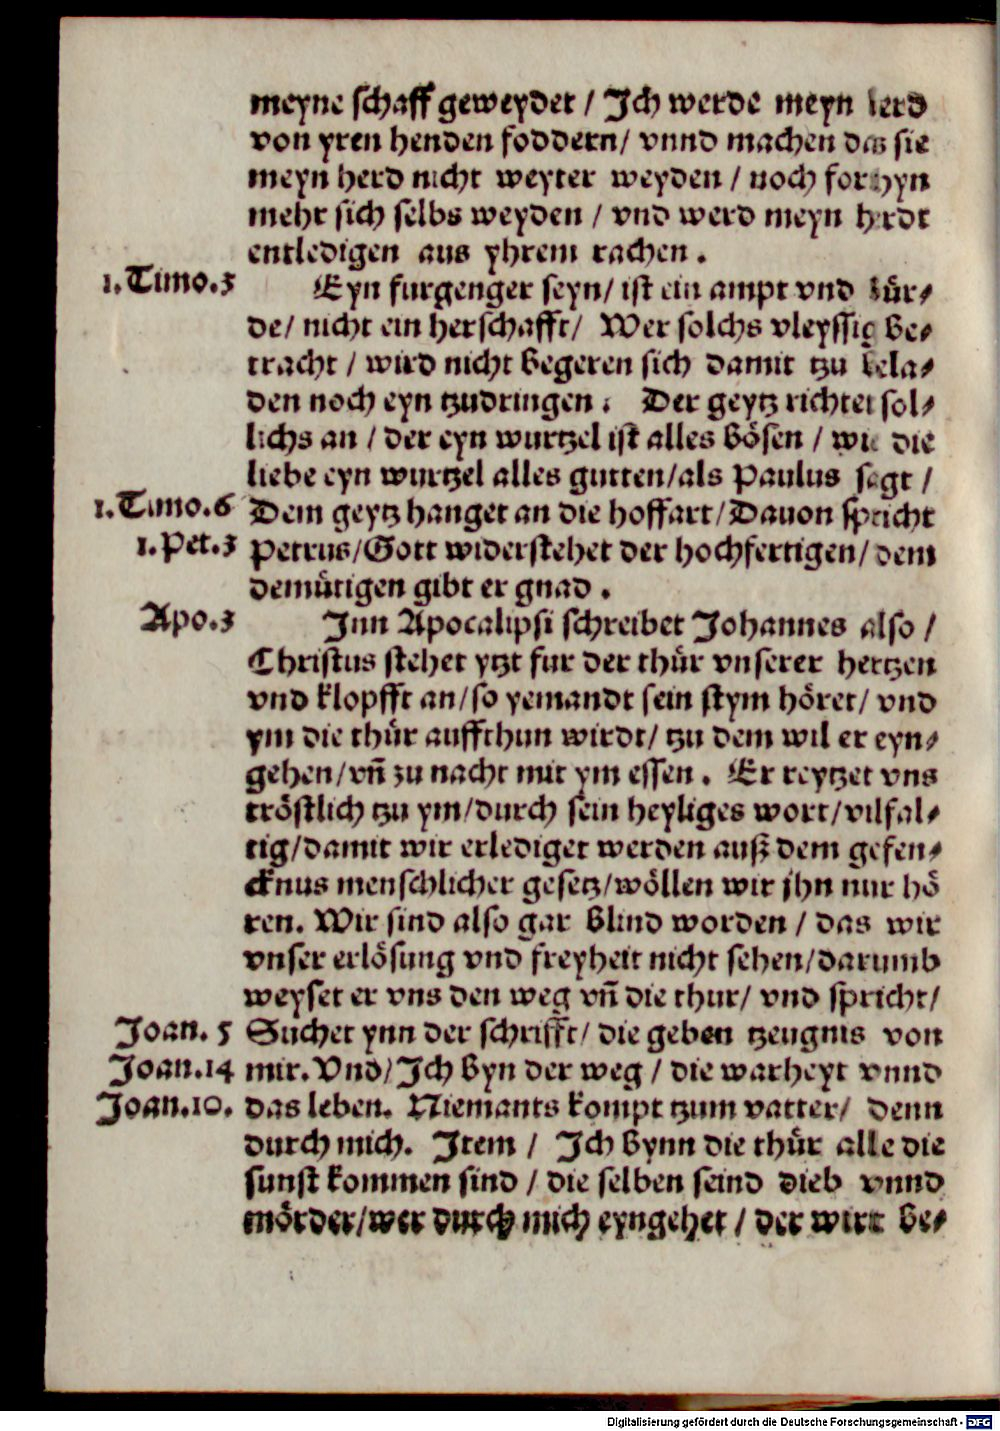 meyne schaff geweydet / Jch werde meyn herd
von yren henden foddern/ vnnd machen das sie
meyn herd nicht weyter weyden / noch forthyn
mehr sich selbs weyden / vnd werd meyn herdt
entledigen aus yhrem rachen .
1.Timo.3 Eyn furgenger seyn/ ist ein ampt vnd bür⸗
de/ nicht ein herschafft/ Wer solchs vleyssig be⸗
tracht / wird nicht begeren sich damit tzu bela⸗
den noch eyn tzudringen . Der geytz richtet sol⸗
lichs an / der eyn wurtzel ist alles bösen / wie die
liebe eyn wurtzel alles gutten/als Paulus sagt /
1.Timo.6 Dem geytz hanget an die hoffart/Dauon spricht
1.Pet.3 Petrus/Gott widerstehet der hochfertigen/ dem
demütigen gibt er gnad .
Apo.3 Jnn Apocalipsi schreibet Johannes also /
Christus stehet ytzt fur der thür vnserer hertzen
vnd klopfft an/so yemandt sein stym höret/ vnd
ym die thür auffthun wirdt/ tzu dem wil er eyn⸗
gehen/vñ zu nacht mit ym essen . Er reytzet vns
tröstlich tzu ym/durch sein heyliges wort/vilfal⸗
tig/damit wir erlediget werden auß dem gefen⸗
cknus menschlicher gesetz/wöllen wir jhn nur hö
ren. Wir sind also gar blind worden / das wir
vnser erlösung vnd freyheit nicht sehen/darumb
weyset er vns den weg vñ die thur/ vnd spricht/
Joan. 5 Suchet ynn der schrifft/ die geben tzeugnis von
Joan.14 mir. Vnd/Jch byn der weg / die warheyt vnnd
Joan.10. das leben. Niemants kompt tzum vatter/ denn
durch mich. Jtem / Jch bynn die thür alle die
sunst kommen sind / die selben seind dieb vnnd
mörder/wer durch mich eyngehet / der wirt be⸗
Digitalisierung gefördert durch die Deutsche Forschungsgemeinschaft - DFG